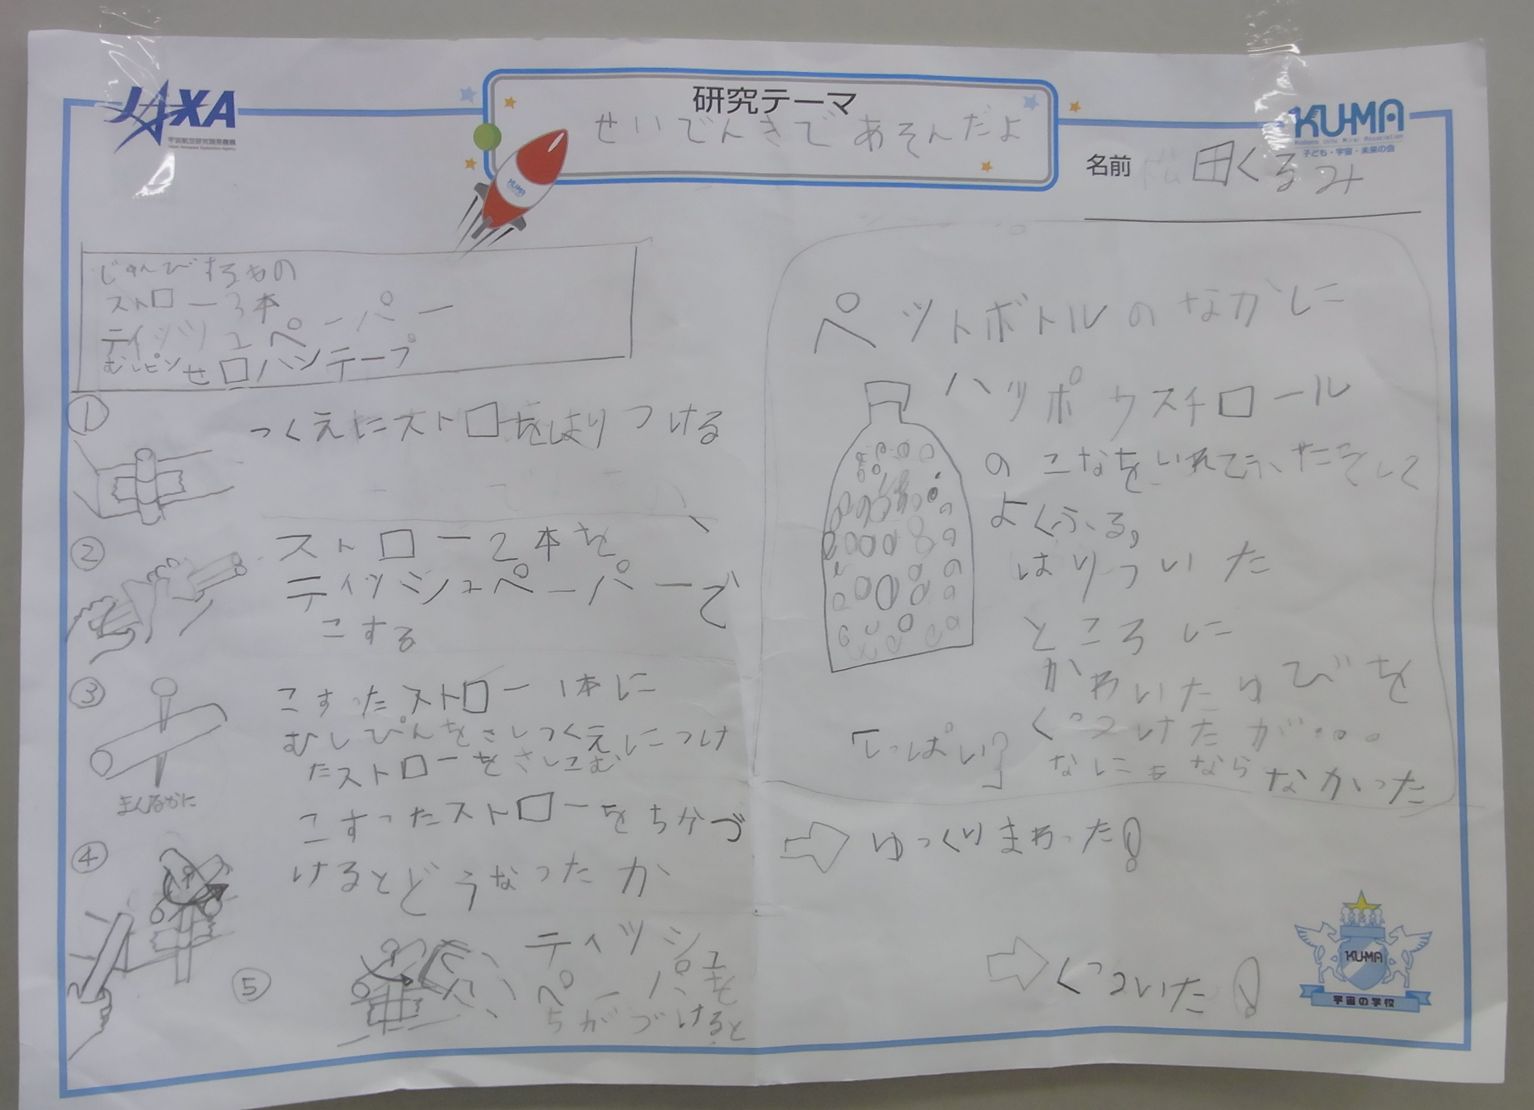 JAXA
宇宙航空研究開発機構
研究テーマ
せいでんきであそんだよ
KU-MA
子ども・宇宙・未来の会
名前 田くるみ
KU-MA
じゅんびするもの
ストロー3本
ティッシュペーパー
むしピン セロハンテープ
①
つくえにストロをはりつける
②
ストロー2本を
ティッシュペーパーで
こする
③
こすったストロー1本に
むしぴんをさしつくえにつけ
たストローをさしこむ
まんなかに
④
こすったストローをちかづ
けるとどうなったか
⑤
ティッシュ
ペーパーを
ちがづけると
ペットボトルのなかに
ハッポウスチロール
のこなをいれてふたをして
よくふる。
はりついた
ところに
かわいたゆびを
くっつけたが・・・
なにもならなかった
「しっぱい」
⇨ ゆっくりまわった!
⇨ くっついた!
KU-MA
宇宙の学校